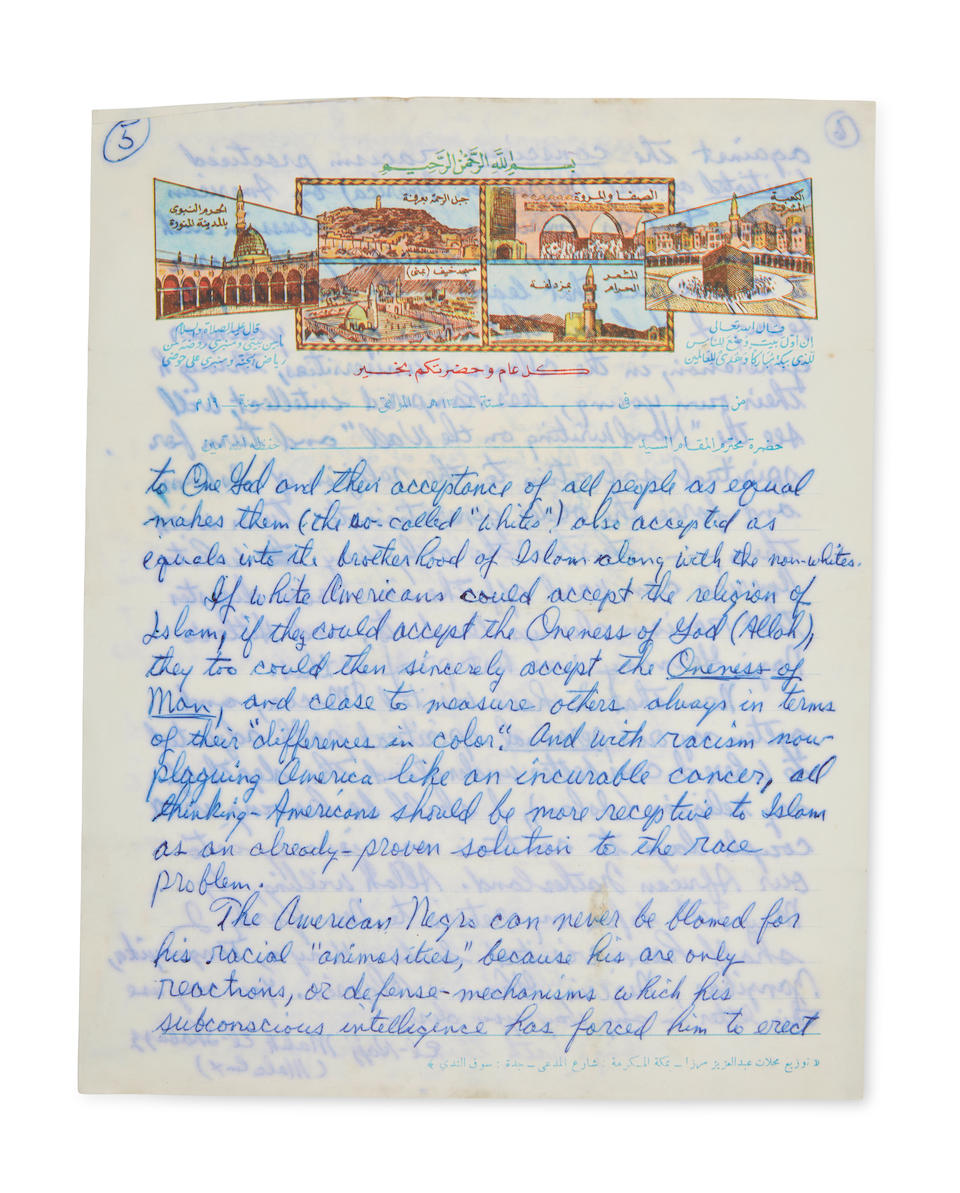 5
بسم الله الرحمن الرحيم
الحرم النبوى
بالمدينة المنورة
جبل الرحمة بعرفة
الصفا والمروة
الكعبة
المشرفة
مسجد خيف (بمنى)
المشعر
الحرام
بمزدلفة
قال عليه الصلاة والسلام
ما بين بيتى ومنبرى روضة من
رياض الجنة ومنبرى على حوضى
قال الله تعالى
إن أول بيت وضع للناس
للذى ببكة مباركا وهدى للعالمين
كل عام وحضرتكم بخير
فى سنة ١٣ هـ الموافق سنة ١٩ م
حضرة محترم المقام السيد حفظه الله آمين
to One God and their acceptance of all people as equal
makes them (the so-called "whites") also accepted as
equals into the brotherhood of Islam along with the non-whites.
If white Americans could accept the religion of
Islam, if they could accept the Oneness of God (Allah),
they too could then sincerely accept the Oneness of
Man, and cease to measure others always in terms
of their "differences in color". And with racism now
plaguing America like an incurable cancer, all
thinking-Americans should be more receptive to Islam
as an already-proven solution to the race
problem.
The American Negro can never be blamed for
his racial "animosities," because his are only
reactions, or defense-mechanisms which his
subconscious intelligence has forced him to erect
توزيع محلات عبدالعزيز مرزا ــ مكة المكرمة : شارع المدعى ــ جدة : سوق الندى